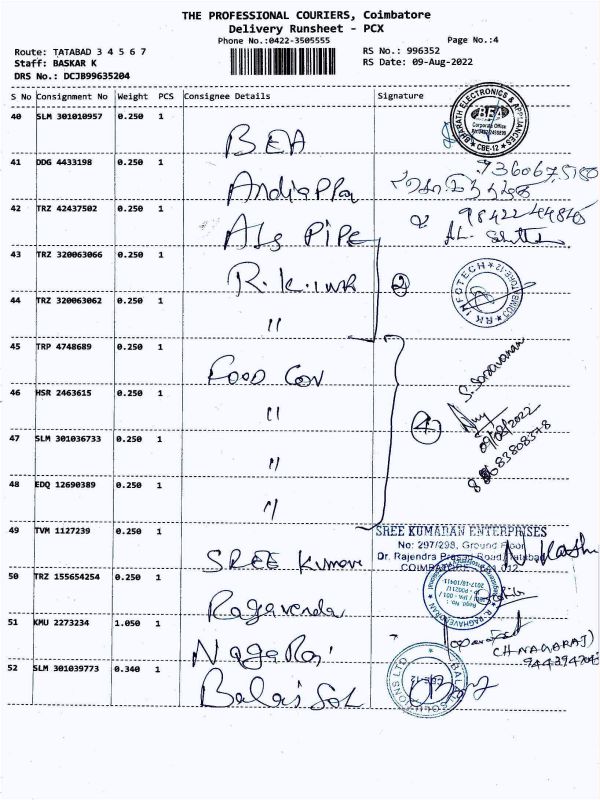 THE PROFESSIONAL COURIERS, Coimbatore
Delivery Runsheet - PCX
Phone No.:0422-3505555
Page No.:4
Route: TATABAD 3 4 5 6 7
RS No.: 996352
Staff: BASKAR K
RS Date: 09-Aug-2022
DRS No.: DCJB99635204
S No Consignment No Weight PCS Consignee Details Signature
40 SLM 301010957 0.250 1 BEA
BHARATH ELECTRONICS & APPLIANCES
BEA
Corporate Office
CBE-12
41 DDG 4433198 0.250 1
42 TRZ 42437502 0.250 1 ALS PIPE
43 TRZ 320063066 0.250 1 R.K. 2
RK INFOTECH
COIMBATORE-12
44 TRZ 320063062 0.250 1 "
45 TRP 4748689 0.250 1 FOOD Con
S. Saravanan
46 HSR 2463615 0.250 1 " 4
09/08/2022
47 SLM 301036733 0.250 1 "
48 EDQ 12690389 0.250 1 "
49 TVM 1127239 0.250 1 SREE Kumaran
SREE KUMARAN ENTERPRISES
No: 297/298, Ground Floor
Dr. Rajendra Prasad Road, Tatabad
COIMBATORE - 641 012
50 TRZ 155654254 0.250 1 Ragavendra
K. RAGHAVENDRAN
51 KMU 2273234 1.050 1 NagaRaj
(H NAGARAJ)
52 SLM 301039773 0.340 1 Balaji Sol